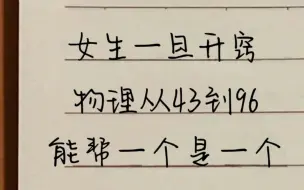 女生一旦开窍
物理从43到96
能帮一个是一个